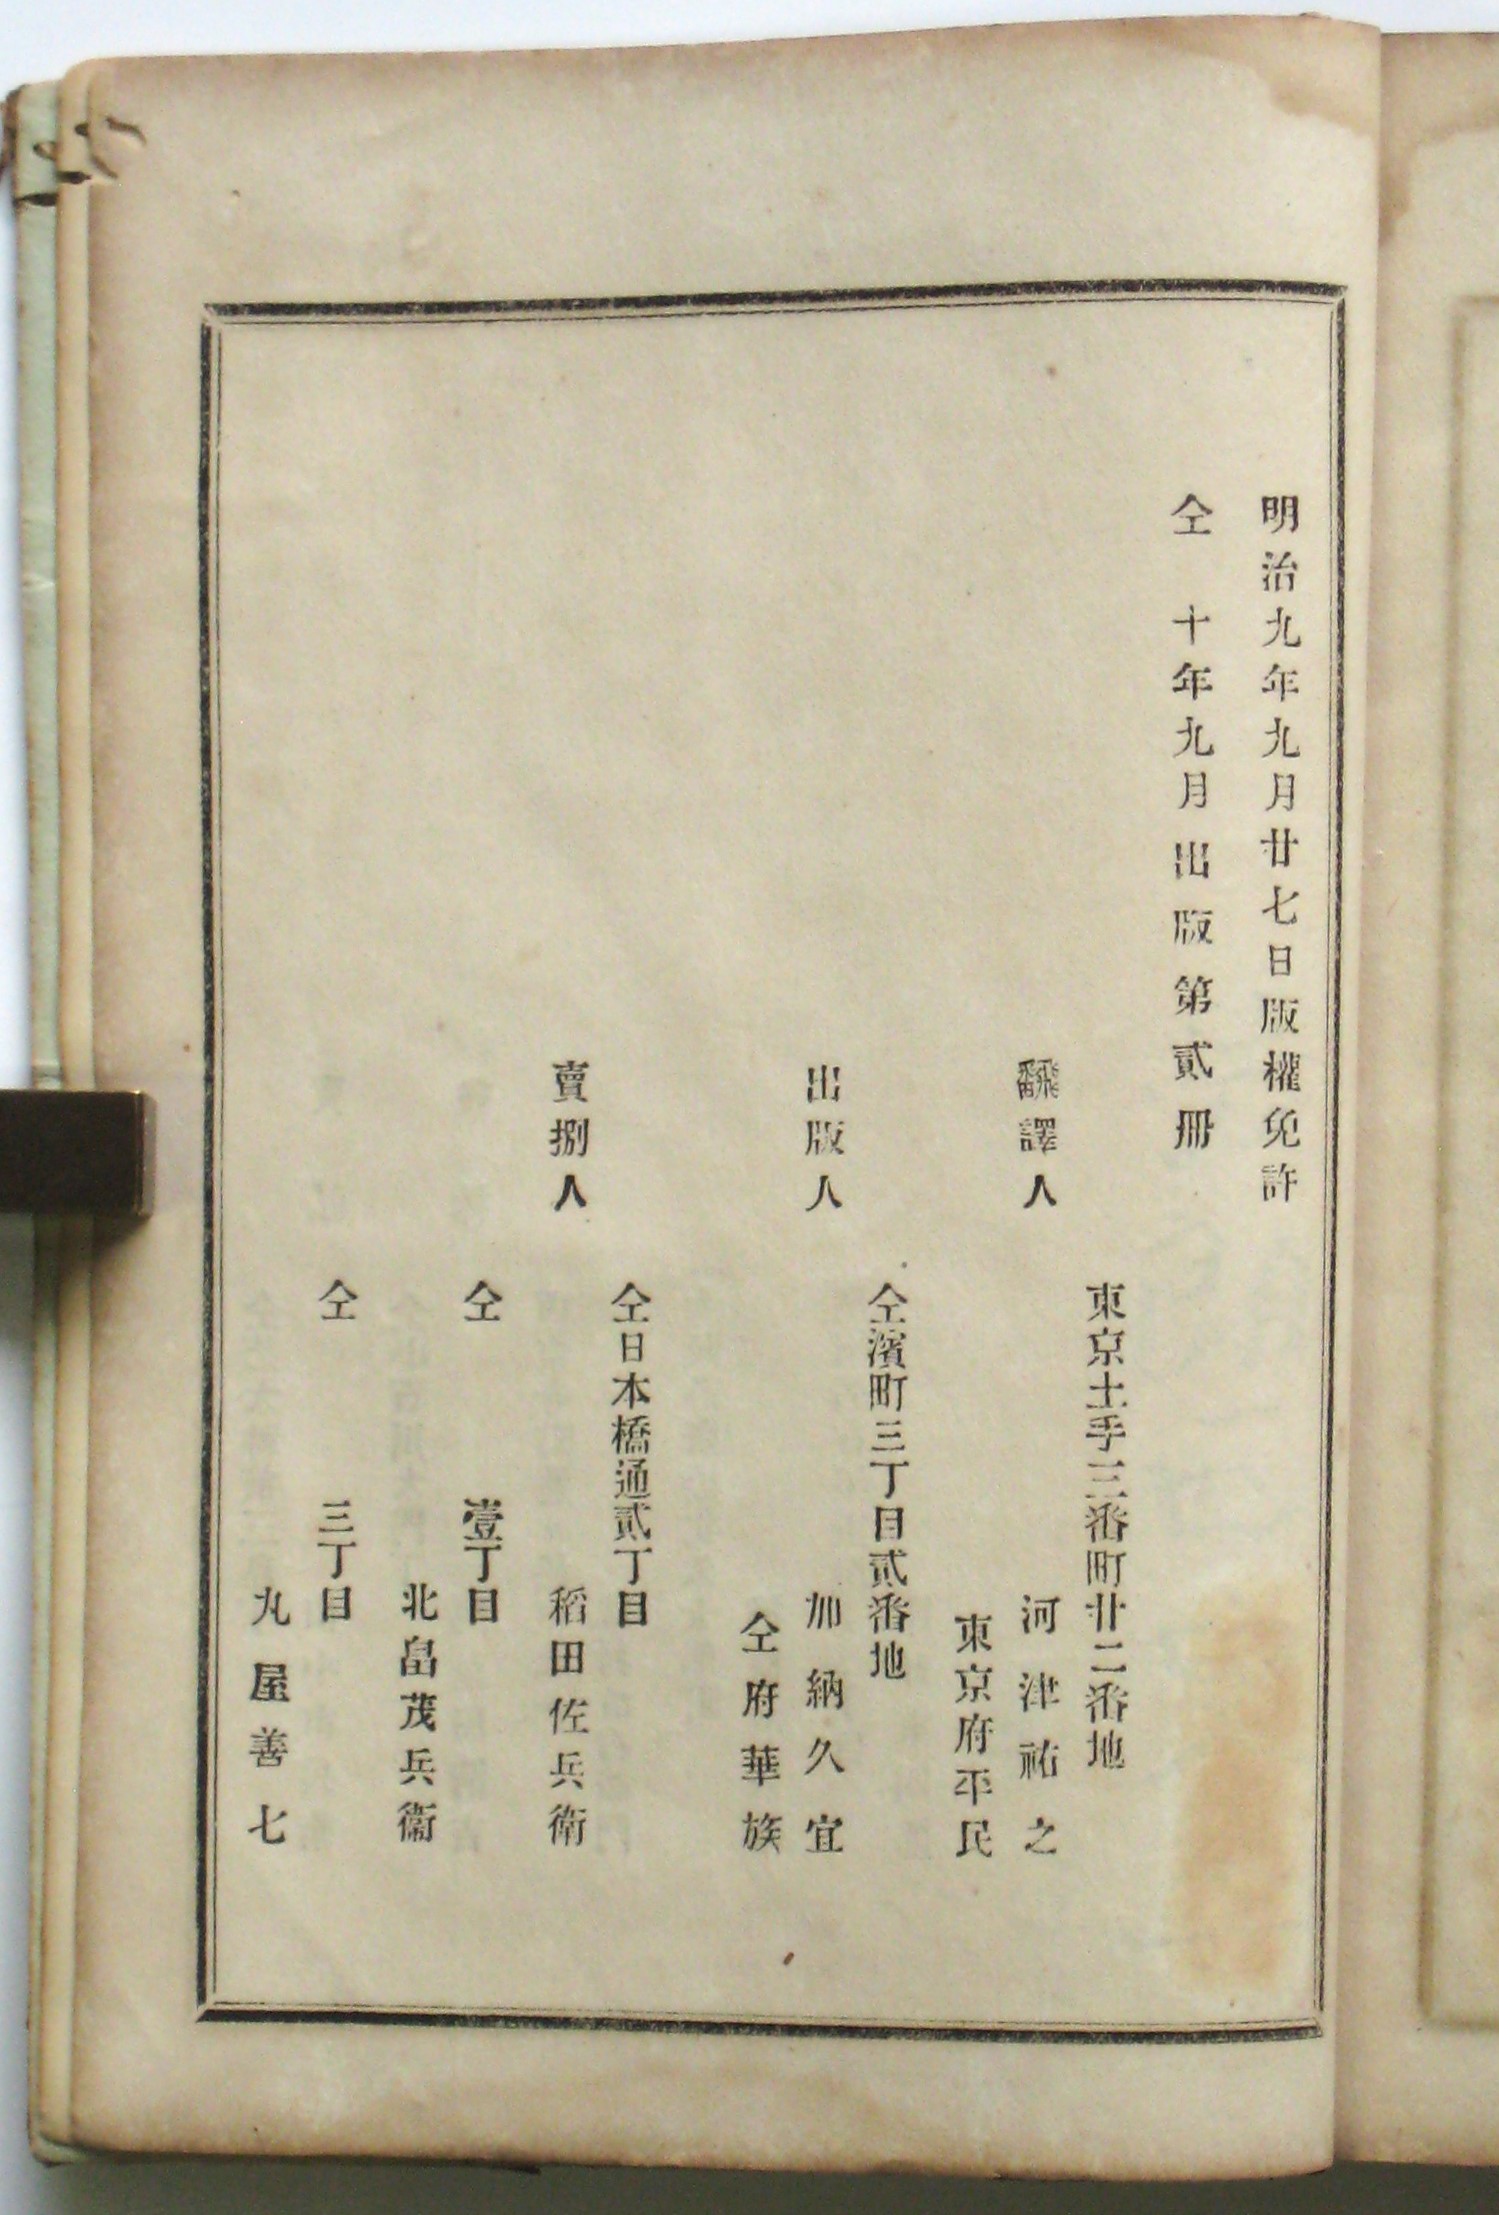 明治九年九月廿七日版權免許
仝　十年九月出版第貳冊
東京土手三番町廿二番地
飜譯人　河津祐之
東京府平民
仝濱町三丁目貳番地
出版人　加納久宜
仝府華族
仝日本橋通貳丁目
賣捌人　稻田佐兵衛
仝　壹丁目
北畠茂兵衞
仝　三丁目
丸屋善七